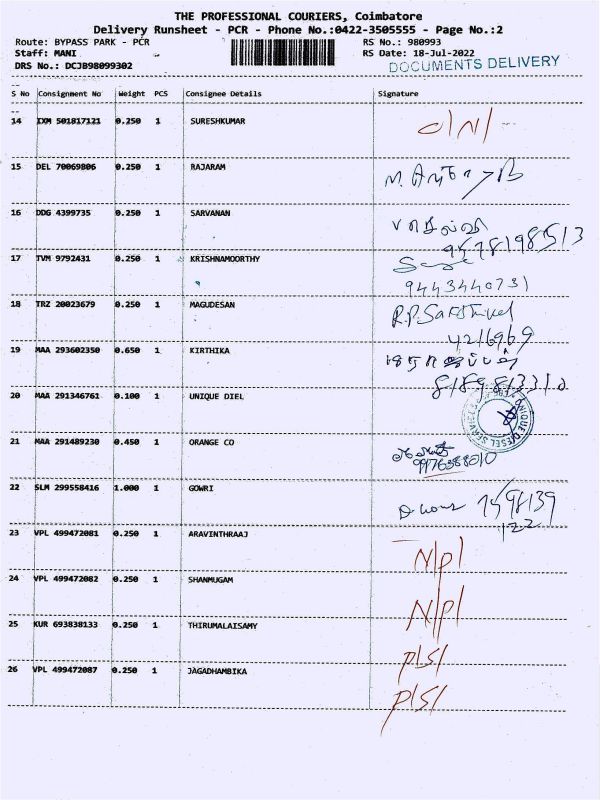 THE PROFESSIONAL COURIERS, Coimbatore
Delivery Runsheet - PCR - Phone No.:0422-3505555 - Page No.:2
Route: BYPASS PARK - PCR RS No.: 980993
Staff: MANI RS Date: 18-Jul-2022
DRS No.: DCJB98099302 DOCUMENTS DELIVERY
S No Consignment No Weight PCS Consignee Details Signature
14 IXM 501817121 0.250 1 SURESHKUMAR
15 DEL 70069806 0.250 1 RAJARAM
16 DDG 4399735 0.250 1 SARVANAN
9578198513
17 TVM 9792431 0.250 1 KRISHNAMOORTHY
9443440731
18 TRZ 20023679 0.250 1 MAGUDESAN
4216969
19 MAA 293602350 0.650 1 KIRTHIKA
20 MAA 291346761 0.100 1 UNIQUE DIEL
UNIQUE DIESEL SERVICES
21 MAA 291489230 0.450 1 ORANGE CO
22 SLM 299558416 1.000 1 GOWRI
23 VPL 499472081 0.250 1 ARAVINTHRAAJ
N/P/
24 VPL 499472082 0.250 1 SHANMUGAM
N/P/
25 KUR 693838133 0.250 1 THIRUMALAISAMY
P/S/
26 VPL 499472087 0.250 1 JAGADHAMBIKA
P/S/